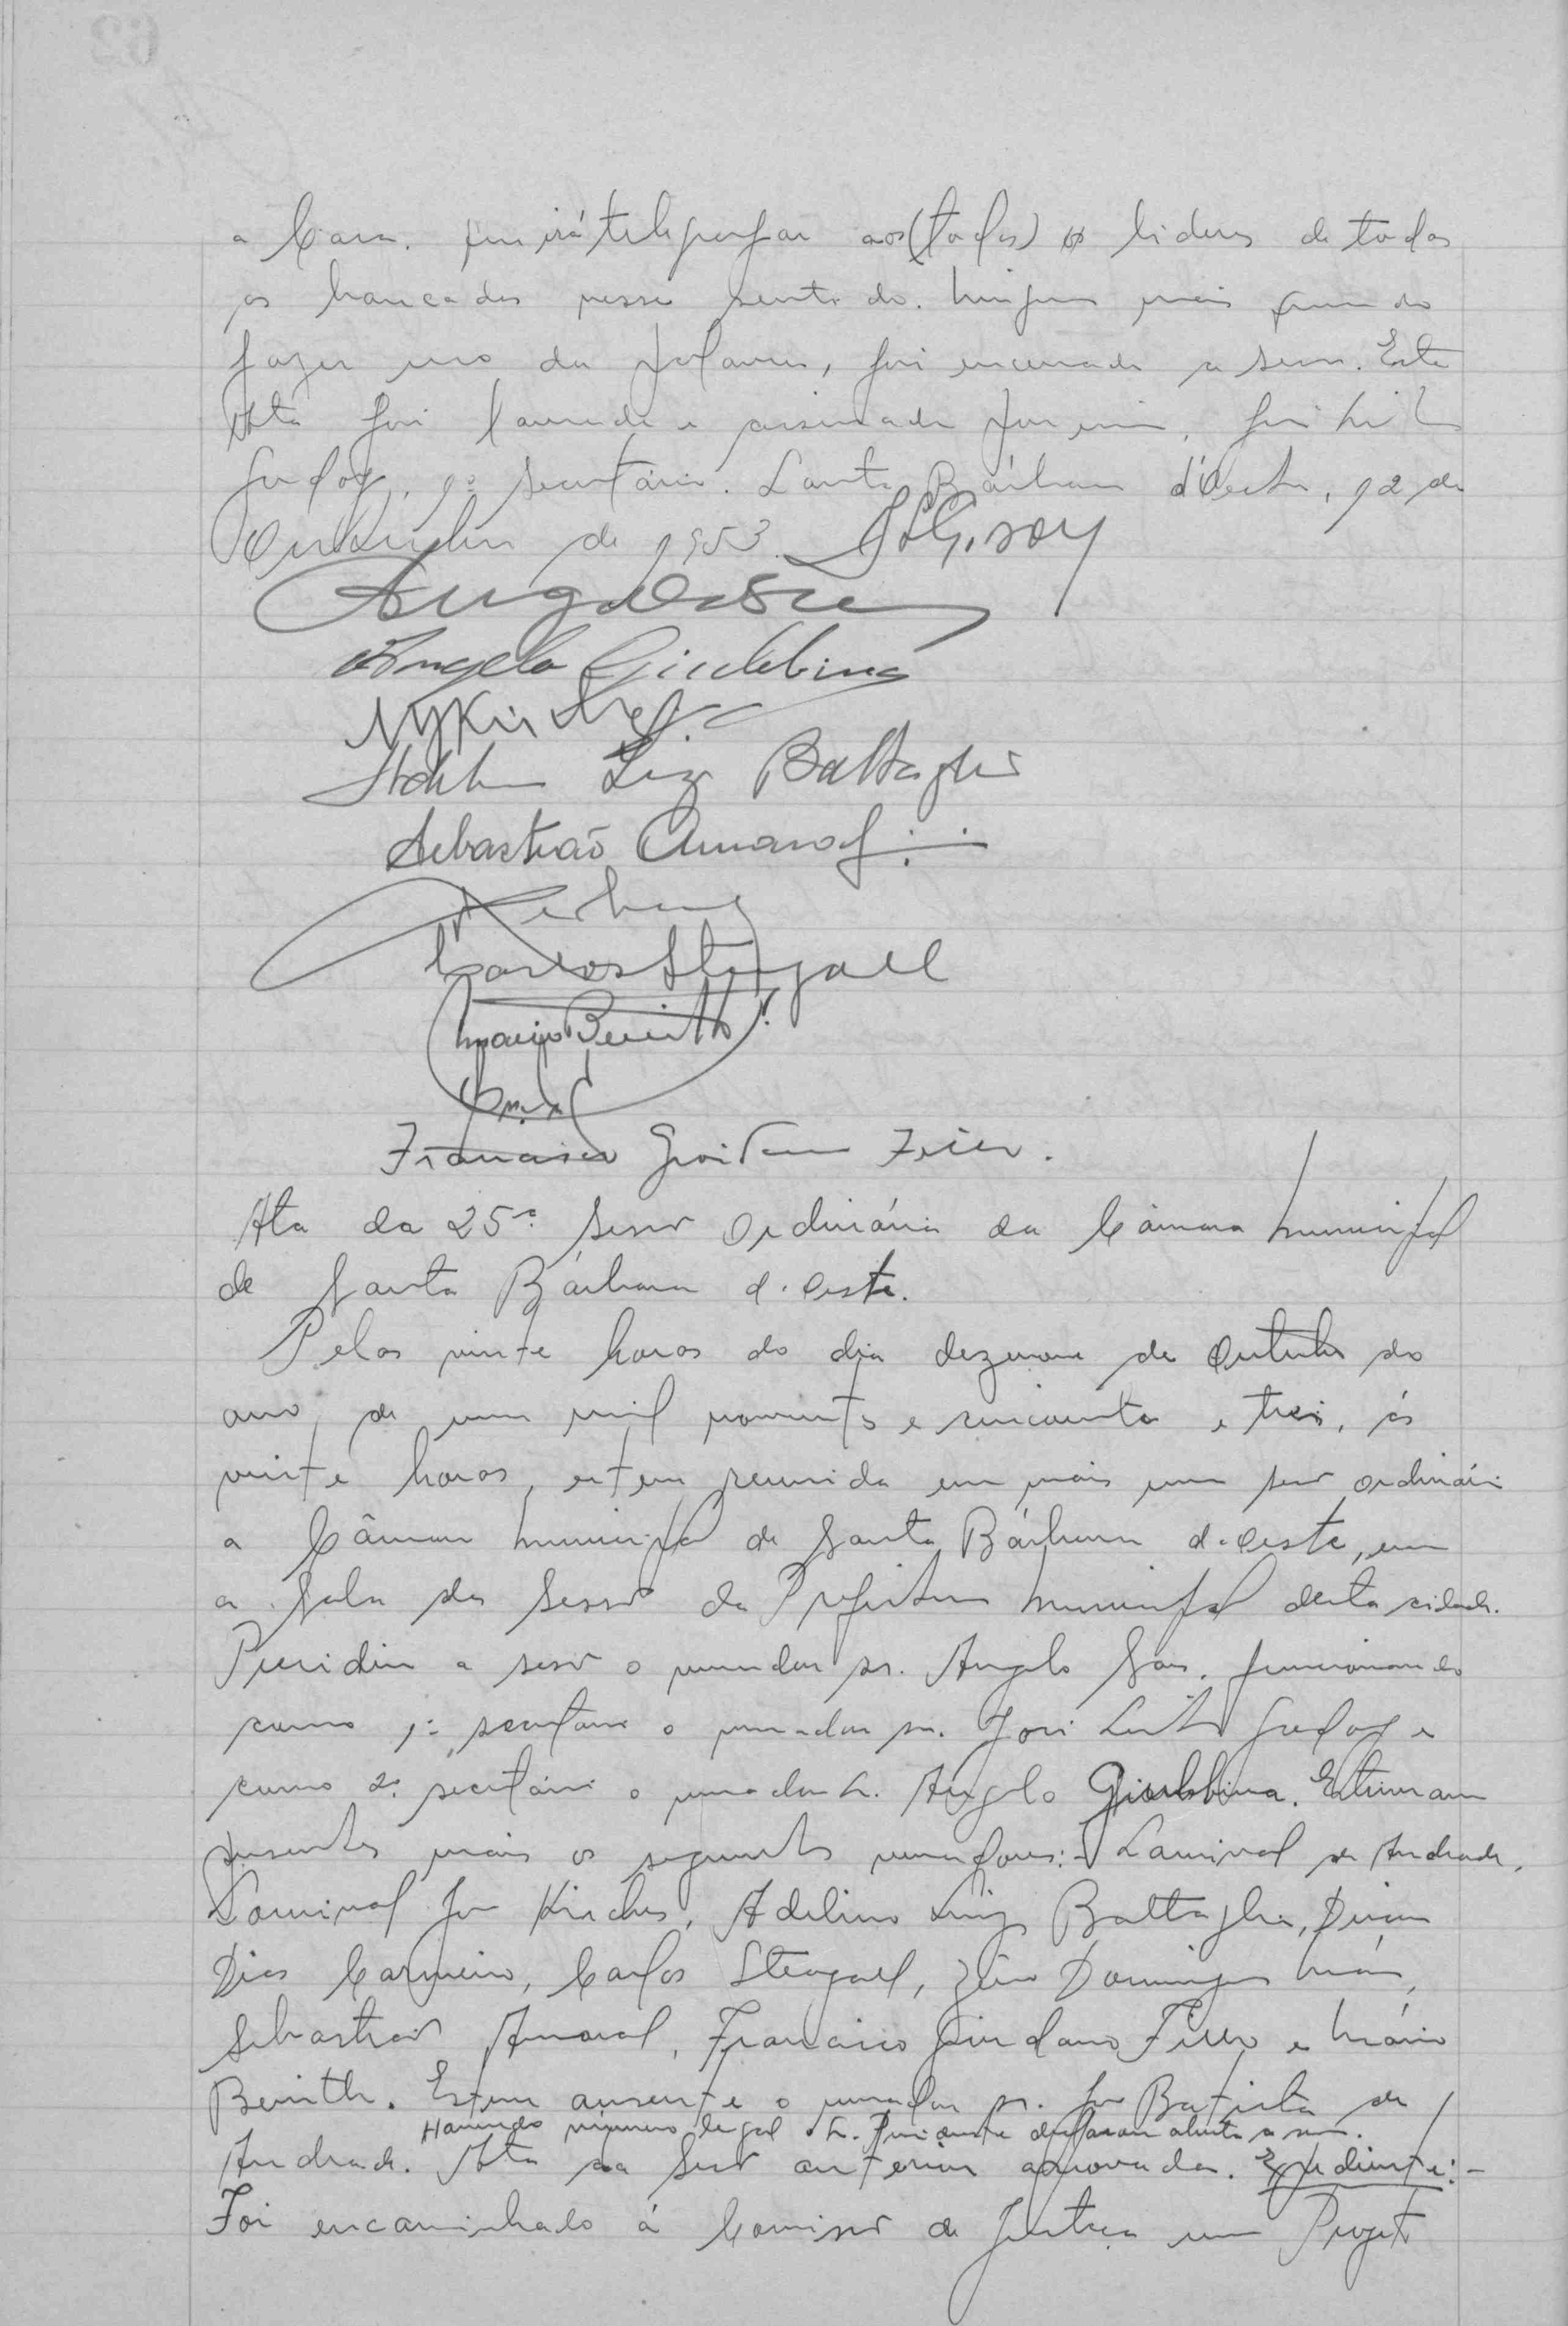 a Casa. que irá telegrafar aos (todos) os lideres de todas
as bancadas nesse sentido. Ninguem mais querendo
fazer uso da palavra, foi encerrada a sessão. Esta
Ata foi lavrada e assinada por mim, José Leite
Godoy, 1º secretário. Santa Bárbara d'Oeste, 12 de
Outubro de 1953. JLGodoy
Angelo Giubbina
Adelino Luiz Battaglia
Sebastião Amaral
Carlos Steagall
Mario Benith
Francisco Giordano Filho.
Ata da 25ª sessão Ordinária da Câmara Municipal
de Santa Bárbara d'oeste.
Pelas vinte horas do dia dezenove de Outubro do
ano de um mil novecentos e cincoenta e tres, ás
vinte horas, esteve reunida em mais uma sessão ordinária
a Câmara Municipal de Santa Bárbara d'oeste, em
a sala da Sessão da Prefeitura Municipal desta cidade.
Presidiu a sessão o vereador sr. Angelo Sans. funcionando
como 1º secretario o vereador sr. José Leite Godoy e
como 2º secretário o vereador sr. Angelo Giubbina. Estiveram
presentes mais os seguintes vereadores:- Lourival de Andrade,
José Kirches, Adelino Luiz Battaglia, Dirceu
Dias Carneiro, Carlos Steagall, Domingues
Sebastião Amaral, Francisco Giordano Filho e Mário
Benith. Esteve ausente o vereador sr. José Batista de
Havendo número legal o sr. Presidente declarou aberta a sessão.
Andrade. Ata da sessão anterior aprovada. Expediente:-
Foi encaminhado á Comissão de Justiça um Projeto